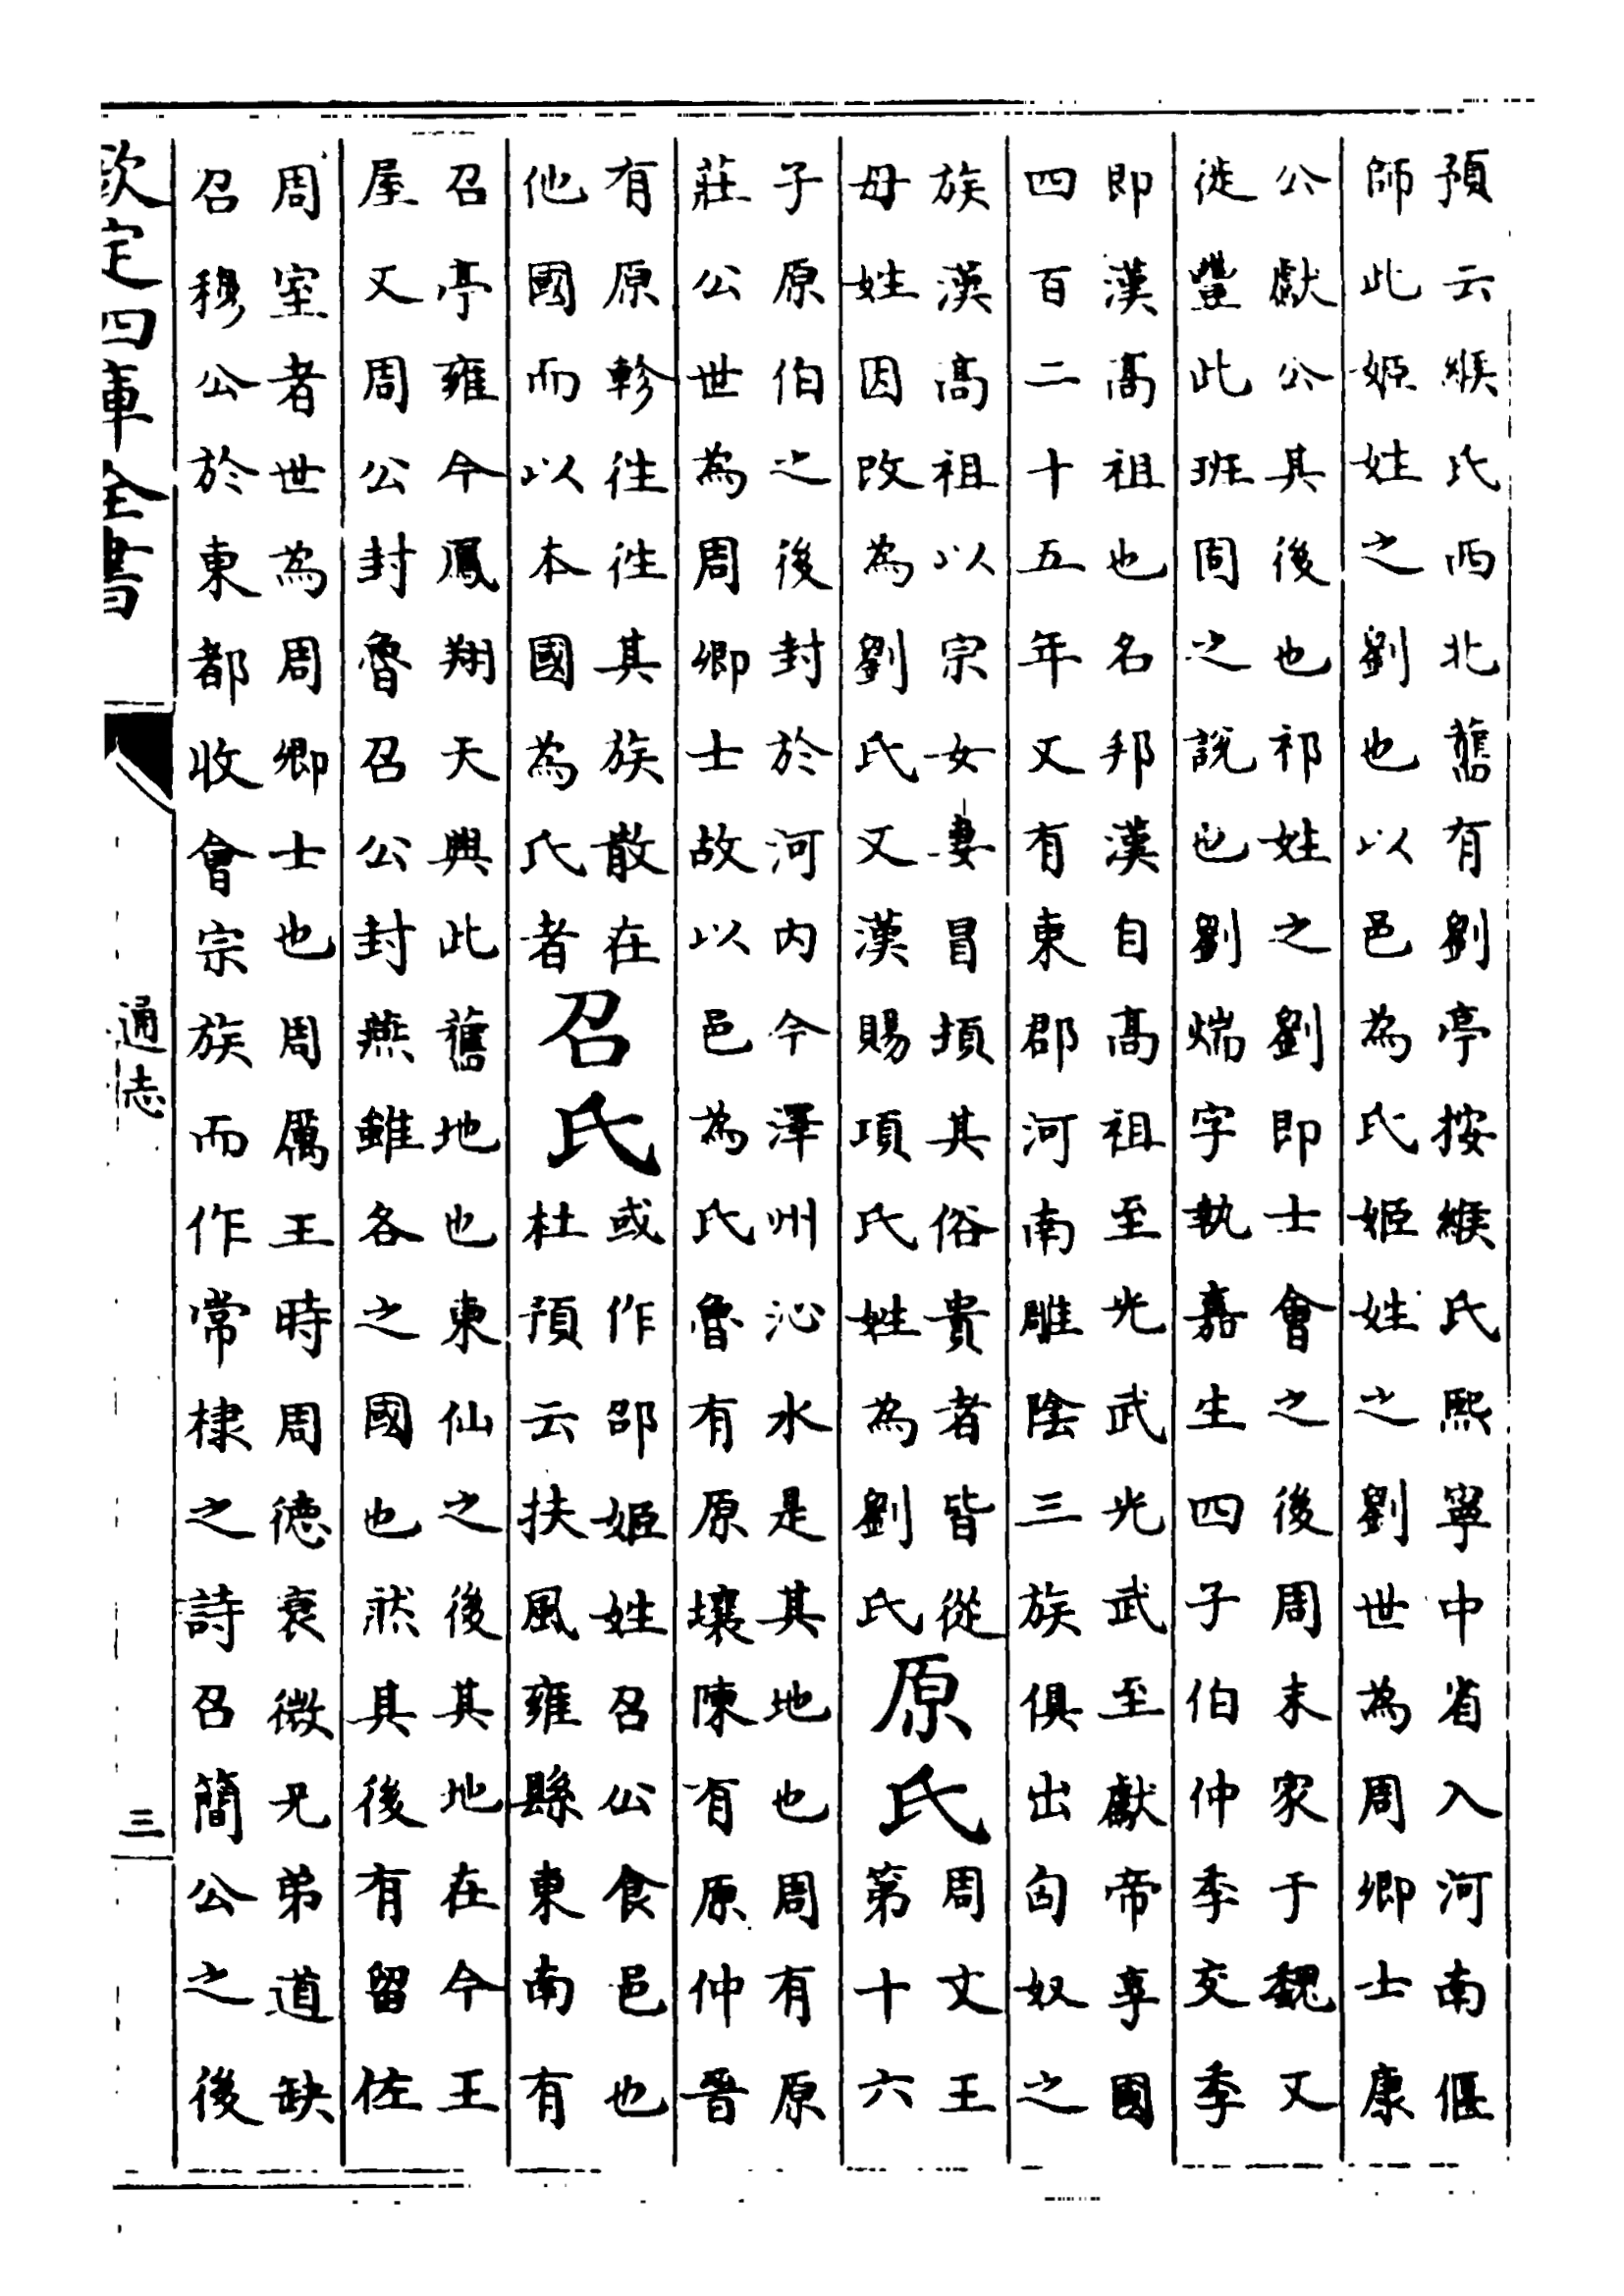 預云緱氏西北舊有劉亭按緱氏熙寧中省入河南偃
師此姬姓之劉也以邑為氏姬姓之劉世為周卿士康
公獻公其後也祁姓之劉即士會之後周末家于魏又
徙豐此班固之說也劉煓字執嘉生四子伯仲季交季
即漢高祖也名邦漢自高祖至光武光武至獻帝享國
四百二十五年又有東郡河南雕陰三族俱出匈奴之
族漢高祖以宗女妻冒頓其俗貴者皆從
母姓因改為劉氏又漢賜項氏姓為劉氏
原氏
周文王
第十六
子原伯之後封於河內今澤州沁水是其地也周有原
莊公世為周卿士故以邑為氏魯有原壤陳有原仲晉
有原軫往往其族散在
他國而以本國為氏者
召氏
或作邵姬姓召公食邑也
杜預云扶風雍縣東南有
召亭雍今鳳翔天興此舊地也東仙之後其地在今王
屋又周公封魯召公封燕雖各之國也然其後有留佐
周室者世為周卿士也周厲王時周德衰微兄弟道缺
召穆公於東都收會宗族而作常棣之詩召簡公之後
欽定四庫全書
通志
三